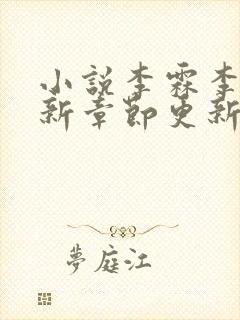 小説李霖李
新章節更新
夢庭江